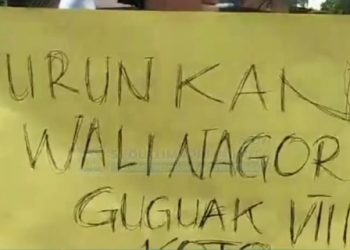 URUN KAN
WALI NAGOR
GUGUAK VIII
KOTO